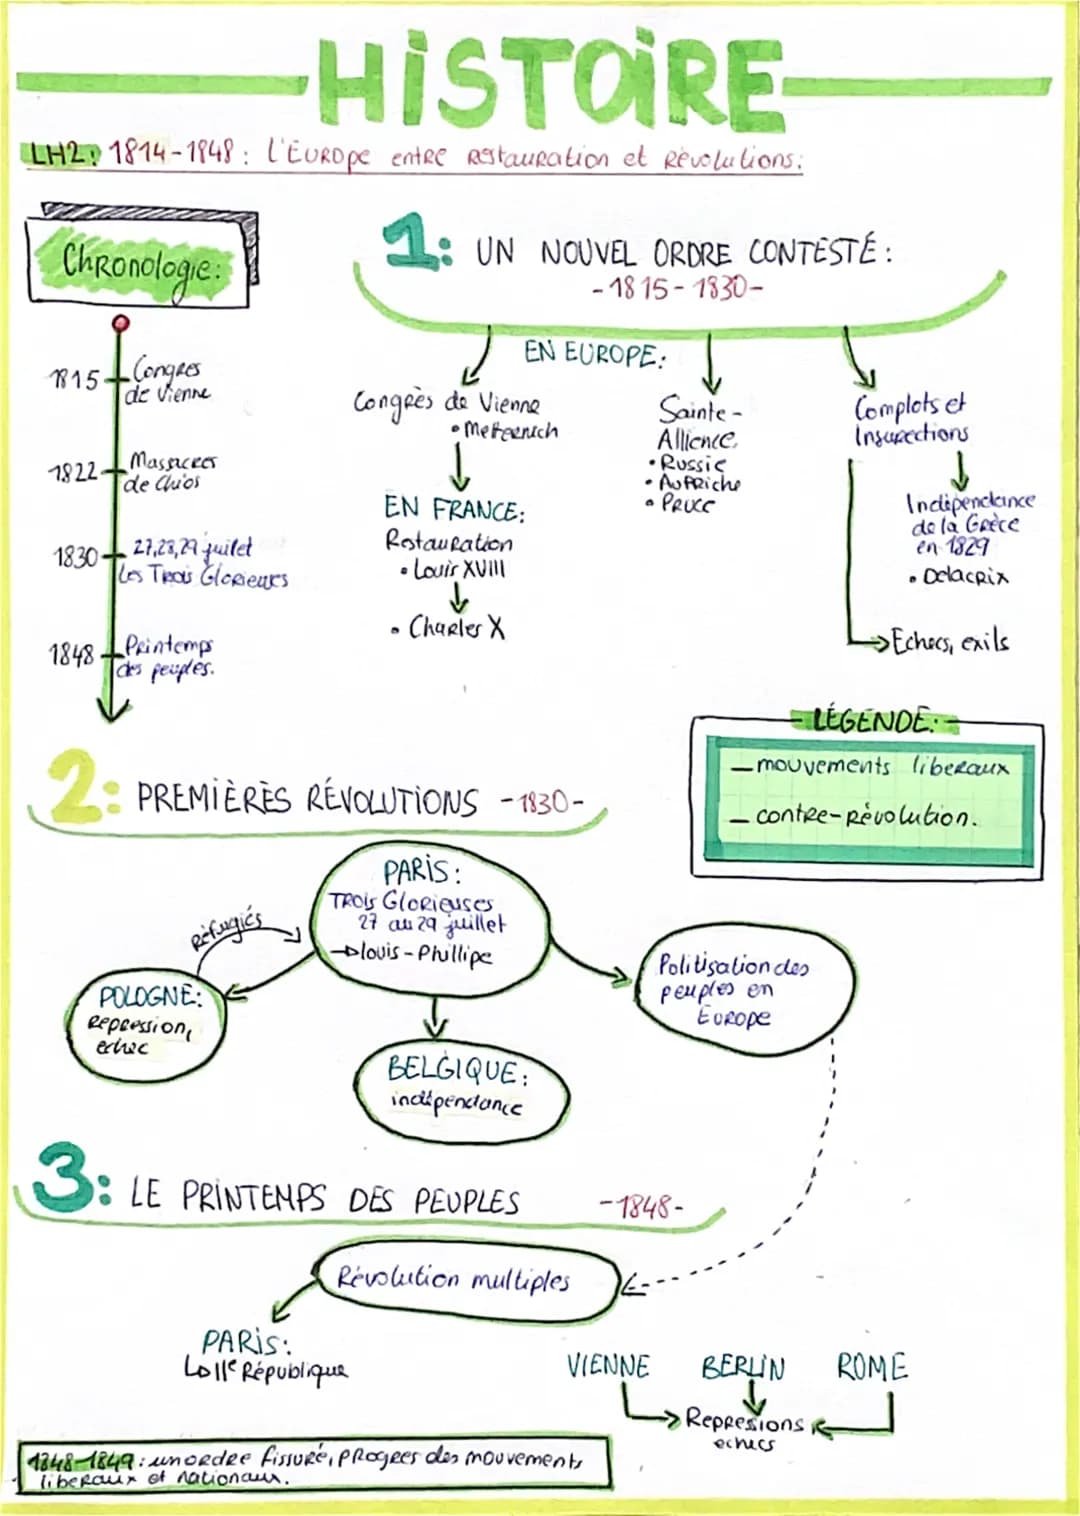 HISTOIRE
LH2: 1814-1848: L'EUROPE entre Restauration et Révolutions:
Chronologie:
1815 Congres
de Vienne
1822 Massacres
de Chios
1830 27,28,29 juilet
Les Trois Glorieuses
1848 Printemps
des peuples.
1: UN NOUVEL ORDRE CONTESTÉ:
-1815-1830-
EN EUROPE:
Congrès de Vienne
• Metternich
EN FRANCE:
Restauration
• Louis XVIII
• Charles X
Sainte-
Allience
• Russie
• Autriche
• Prucc
Complots et
Insurections
Indépendance
de la Grèce
en 1829
• Delacrix
Echecs, exils
LÉGENDE:
— mouvements liberaux
— contre-révolution.
2: PREMIÈRES RÉVOLUTIONS -1830-
PARIS:
TROIS Glorieuses
27 au 29 juillet
→ louis-Phillipe
Réfugiés
POLOGNE:
Repression,
echec
BELGIQUE:
indépendance
Politisation des
peuples en
EUROPE
3: LE PRINTEMPS DES PEUPLES -1848-
Révolution multiples
PARIS:
La IIe République
VIENNE BERLIN ROME
Represions
echecs
1848-1849: un ordre fissuré, progrees des mouvements
liberaux et nationaux.